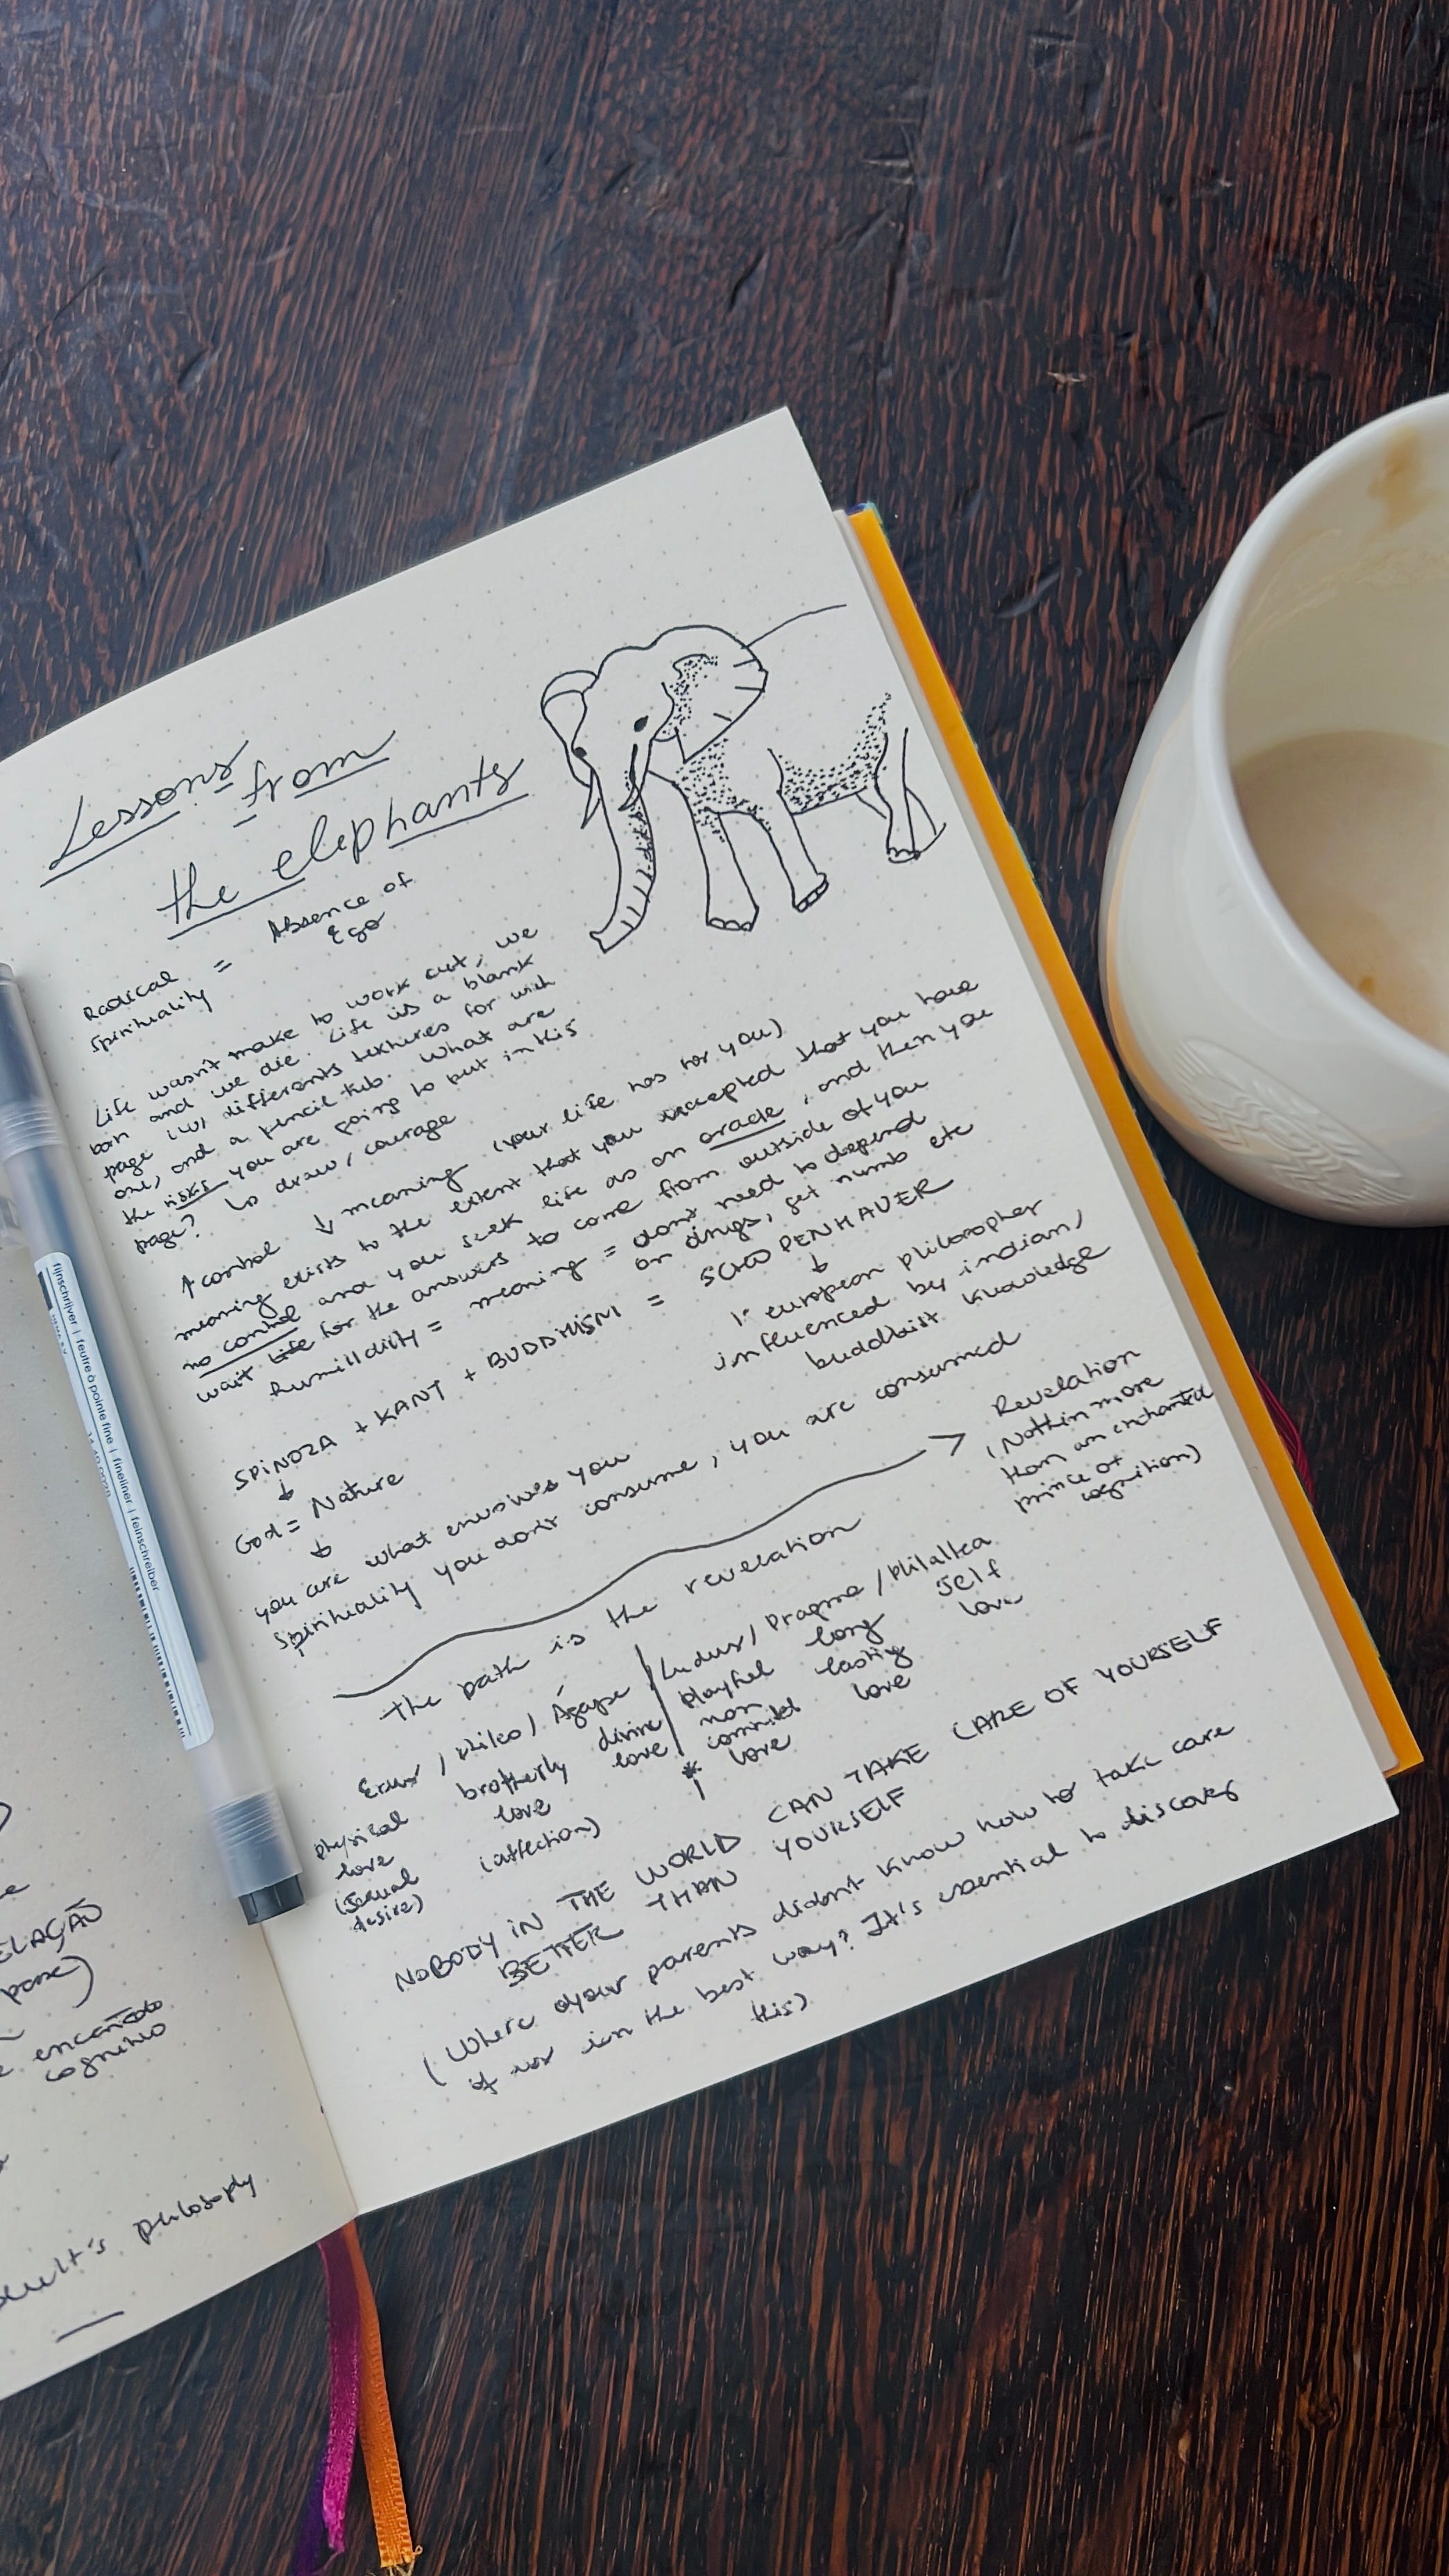 Lessons
from
the elephants
Radical = Absence of
spirituality Ego
Life wasn't make to work out, we
born and we die. Life is a blank
page differents textures for wich
one, and a pencil tub. What are
the risks you are going to put in this
page? to draw / courage
↑ control ↓ meaning (your life has for you)
meaning exists to the extent that you accepted that you have
no control and you seek life as an oracle, and then you
wait life for the answers to come from outside of you
humilldity = meaning = don't need to depend
on drugs, get numb etc
SPINOZA + KANT + BUDDHISM = SCHOPENHAUER
↓ ↓
God = Nature 1º european philosopher
↓ influenced by indian/
buddhist knowledge
you are what envolves you
spirituality you don't consume, you are consumed
Revelation
(Nothin more
than an enchanted
prince of
cognition)
The path is the revelation
Erus / Phileo / Ágape / Ludus / Pragma / Philaltea
physical love (sexual desire)
brotherly love (affection)
divine love
playful non commited love
long lasting love
self love
*
NOBODY IN THE WORLD CAN TAKE CARE OF YOURSELF
BETTER THAN YOURSELF
(Where your parents didn't know how to take care
of us in the best way? It's essential to discover
this)
fijnschrijver | feutre à pointe fine | fineliner | feinschreiber
ELAÇÃO
cognitivo
philosophy